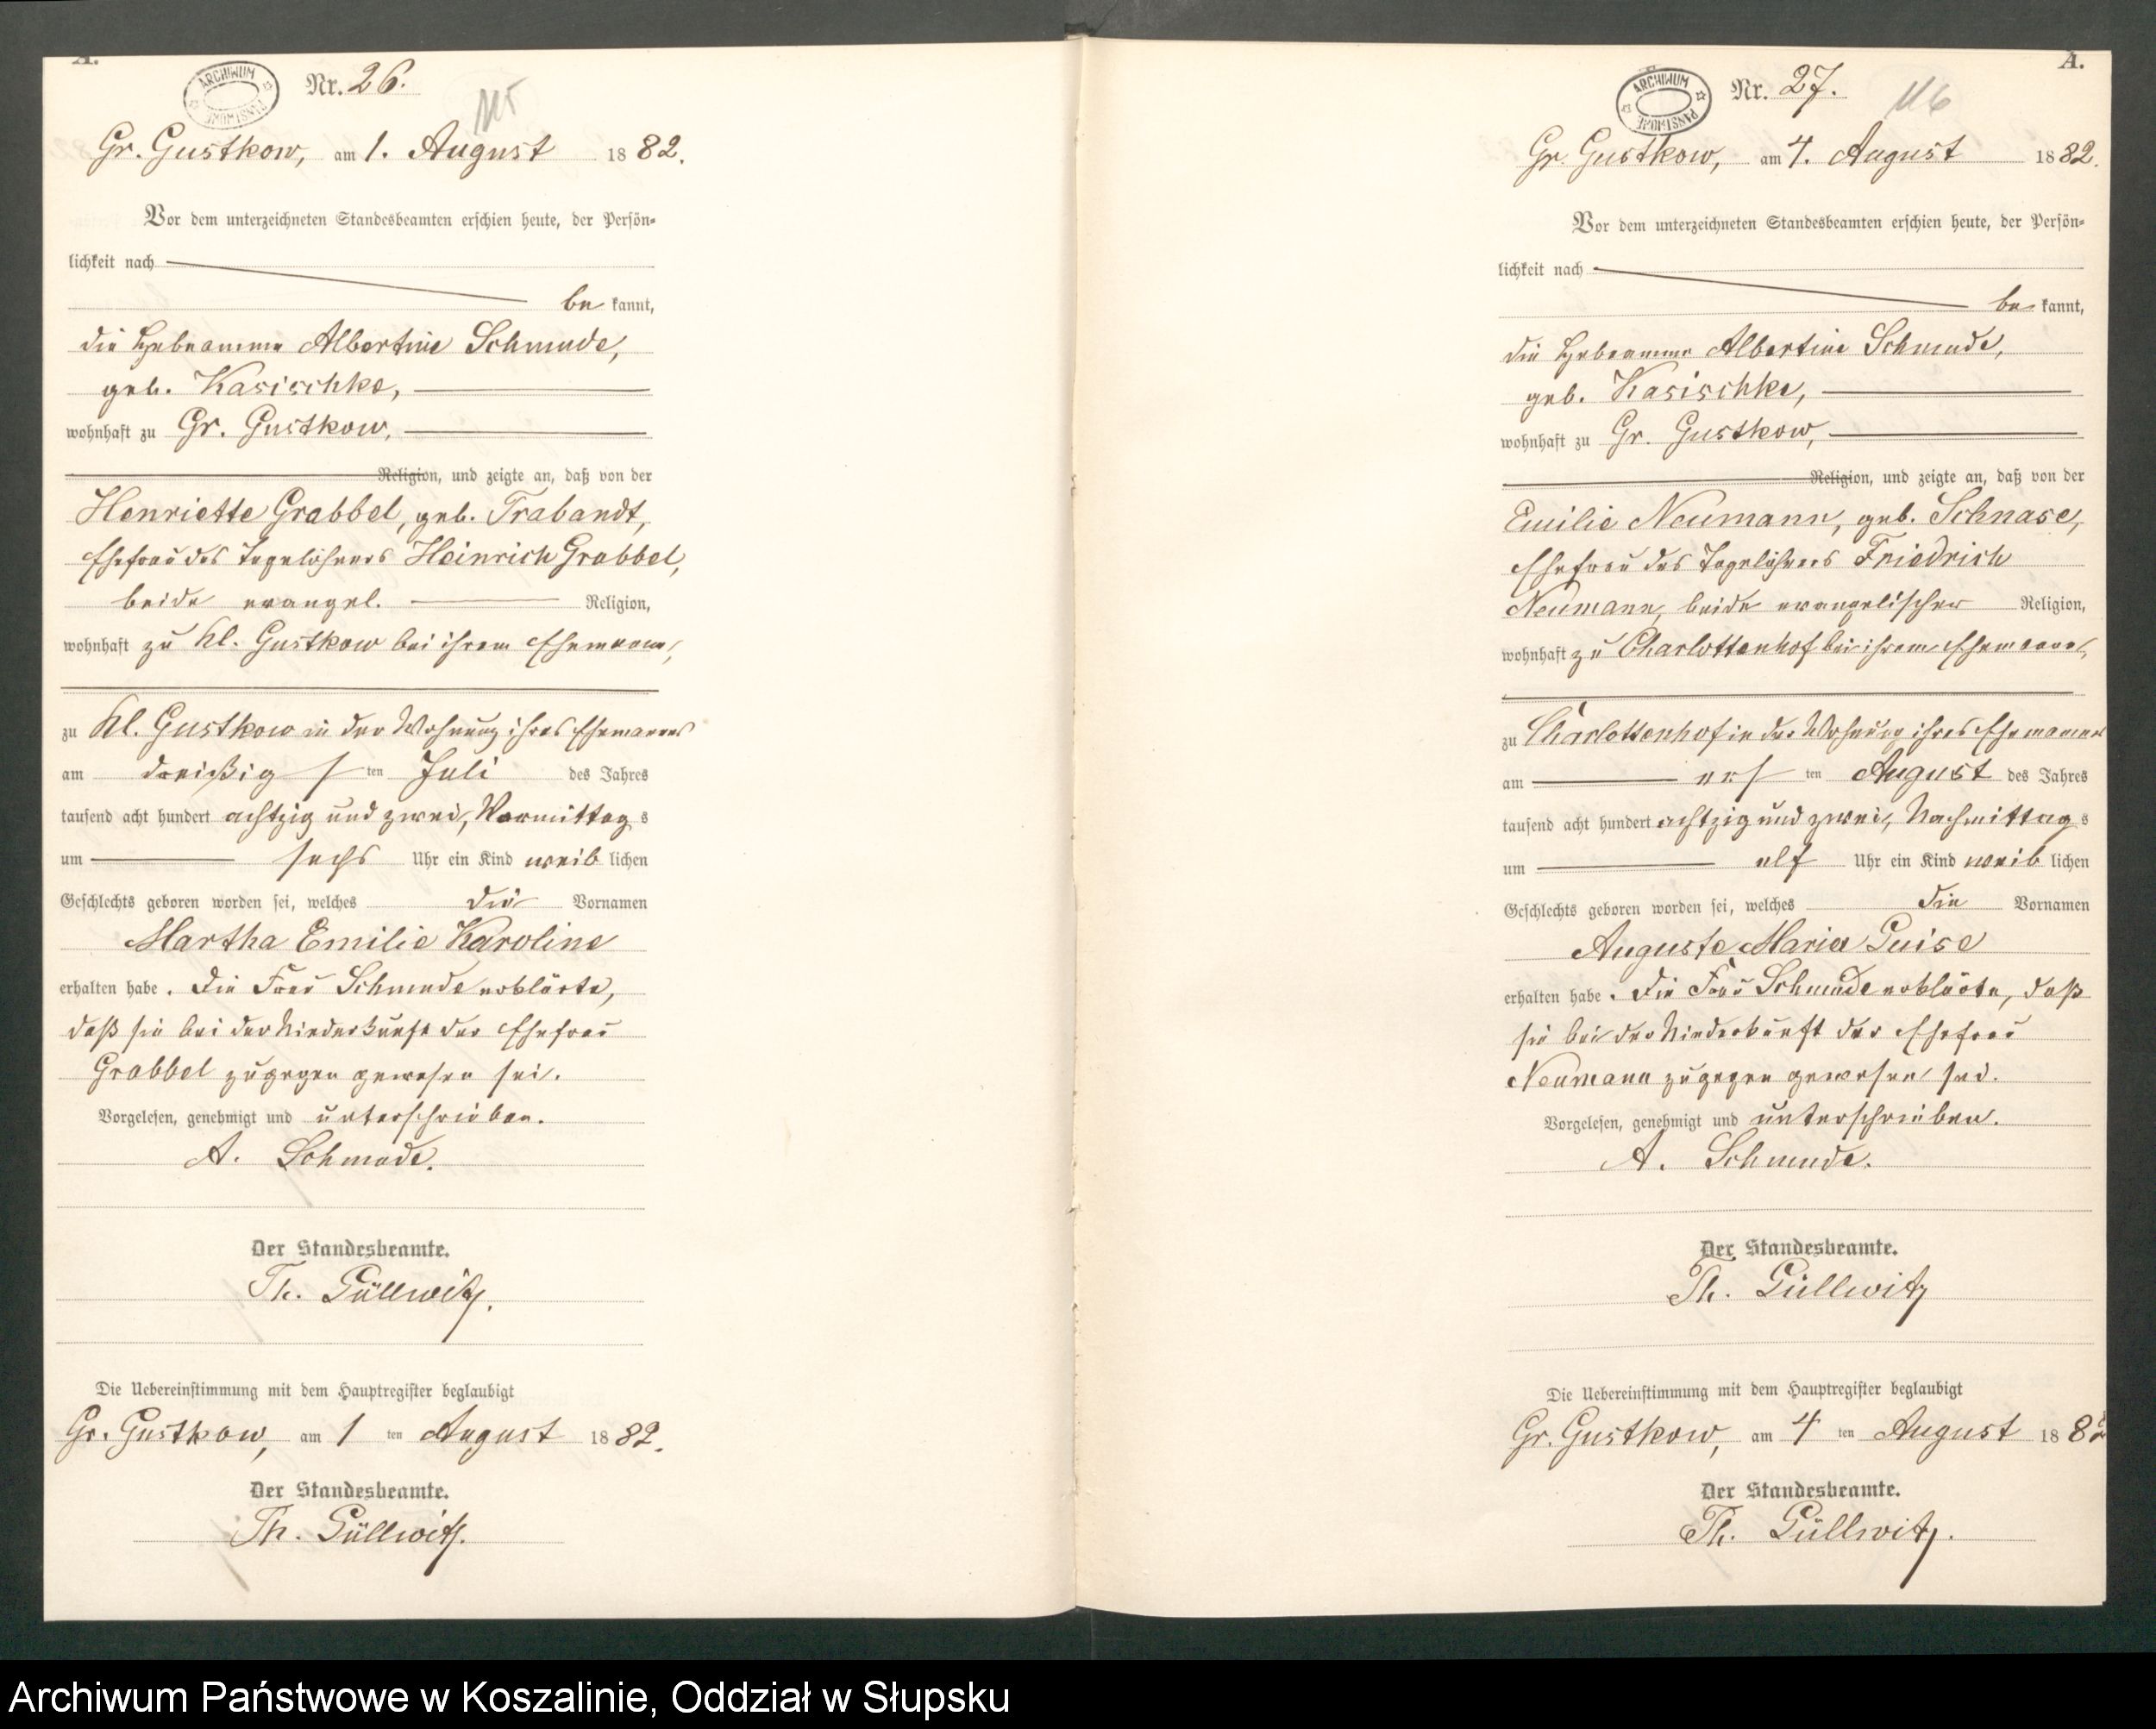 A.
ARCHIWUM PAŃSTWOWE
Nr. 26.
115
Gr. Gustkow, am 1. August 1882.
Vor dem unterzeichneten Standesbeamten erschien heute, der Persön-
lichkeit nach
be kannt,
die Hebeamme Albertine Schmude,
geb. Kasischke,
wohnhaft zu Gr. Gustkow,
Religion, und zeigte an, daß von der
Henriette Grabbel, geb. Trabandt,
Ehefrau des Tagelöhners Heinrich Grabbel,
beide evangel. Religion,
wohnhaft zu Kl. Gustkow bei ihrem Ehemanne,
zu Kl. Gustkow in der Wohnung ihres Ehemannes
am dreißigsten Juli des Jahres
tausend acht hundert achtzig und zwei, Vormittags
um sechs Uhr ein Kind weiblichen
Geschlechts geboren worden sei, welches die Vornamen
Martha Emilie Karoline
erhalten habe. Die Frau Schmude erklärte,
daß sie bei der Niederkunft der Ehefrau
Grabbel zugegen gewesen sei.
Vorgelesen, genehmigt und unterschrieben.
A. Schmude.
Der Standesbeamte.
Th. Güllwitz.
Die Uebereinstimmung mit dem Hauptregister beglaubigt
Gr. Gustkow, am 1 ten August 1882.
Der Standesbeamte.
Th. Güllwitz.
A.
ARCHIWUM PAŃSTWOWE
Nr. 27.
116
Gr. Gustkow, am 4. August 1882.
Vor dem unterzeichneten Standesbeamten erschien heute, der Persön-
lichkeit nach
be kannt,
die Hebeamme Albertine Schmude,
geb. Kasischke,
wohnhaft zu Gr. Gustkow,
Religion, und zeigte an, daß von der
Emilie Neumann, geb. Schnase,
Ehefrau des Tagelöhners Friedrich
Neumann, beide evangelischer Religion,
wohnhaft zu Charlottenhof bei ihrem Ehemanne,
zu Charlottenhof in der Wohnung ihres Ehemannes
am ersten August des Jahres
tausend acht hundert achtzig und zwei, Nachmittags
um elf Uhr ein Kind weiblichen
Geschlechts geboren worden sei, welches die Vornamen
Auguste Maria Luise
erhalten habe. Die Frau Schmude erklärte, daß
sie bei der Niederkunft der Ehefrau
Neumann zugegen gewesen sei.
Vorgelesen, genehmigt und unterschrieben.
A. Schmude.
Der Standesbeamte.
Th. Güllwitz
Die Uebereinstimmung mit dem Hauptregister beglaubigt
Gr. Gustkow, am 4 ten August 1882
Der Standesbeamte.
Th. Güllwitz.
Archiwum Państwowe w Koszalinie, Oddział w Słupsku